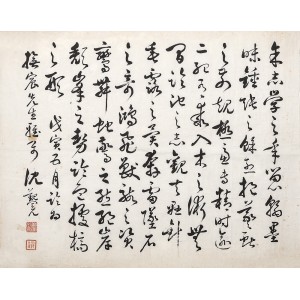 余志學之年留心翰墨
味鍾張之餘烈挹羲獻
之前規極慮專精時逾
二紀有乖入木之術無
間臨池之志觀夫懸針
垂露之異奔雷墜石
之奇鴻飛獸駭之資
鸞舞蛇驚之態絕岸
頹峯之勢臨危據槁
之形 戊寅五月臨為
宸先生雅 沈